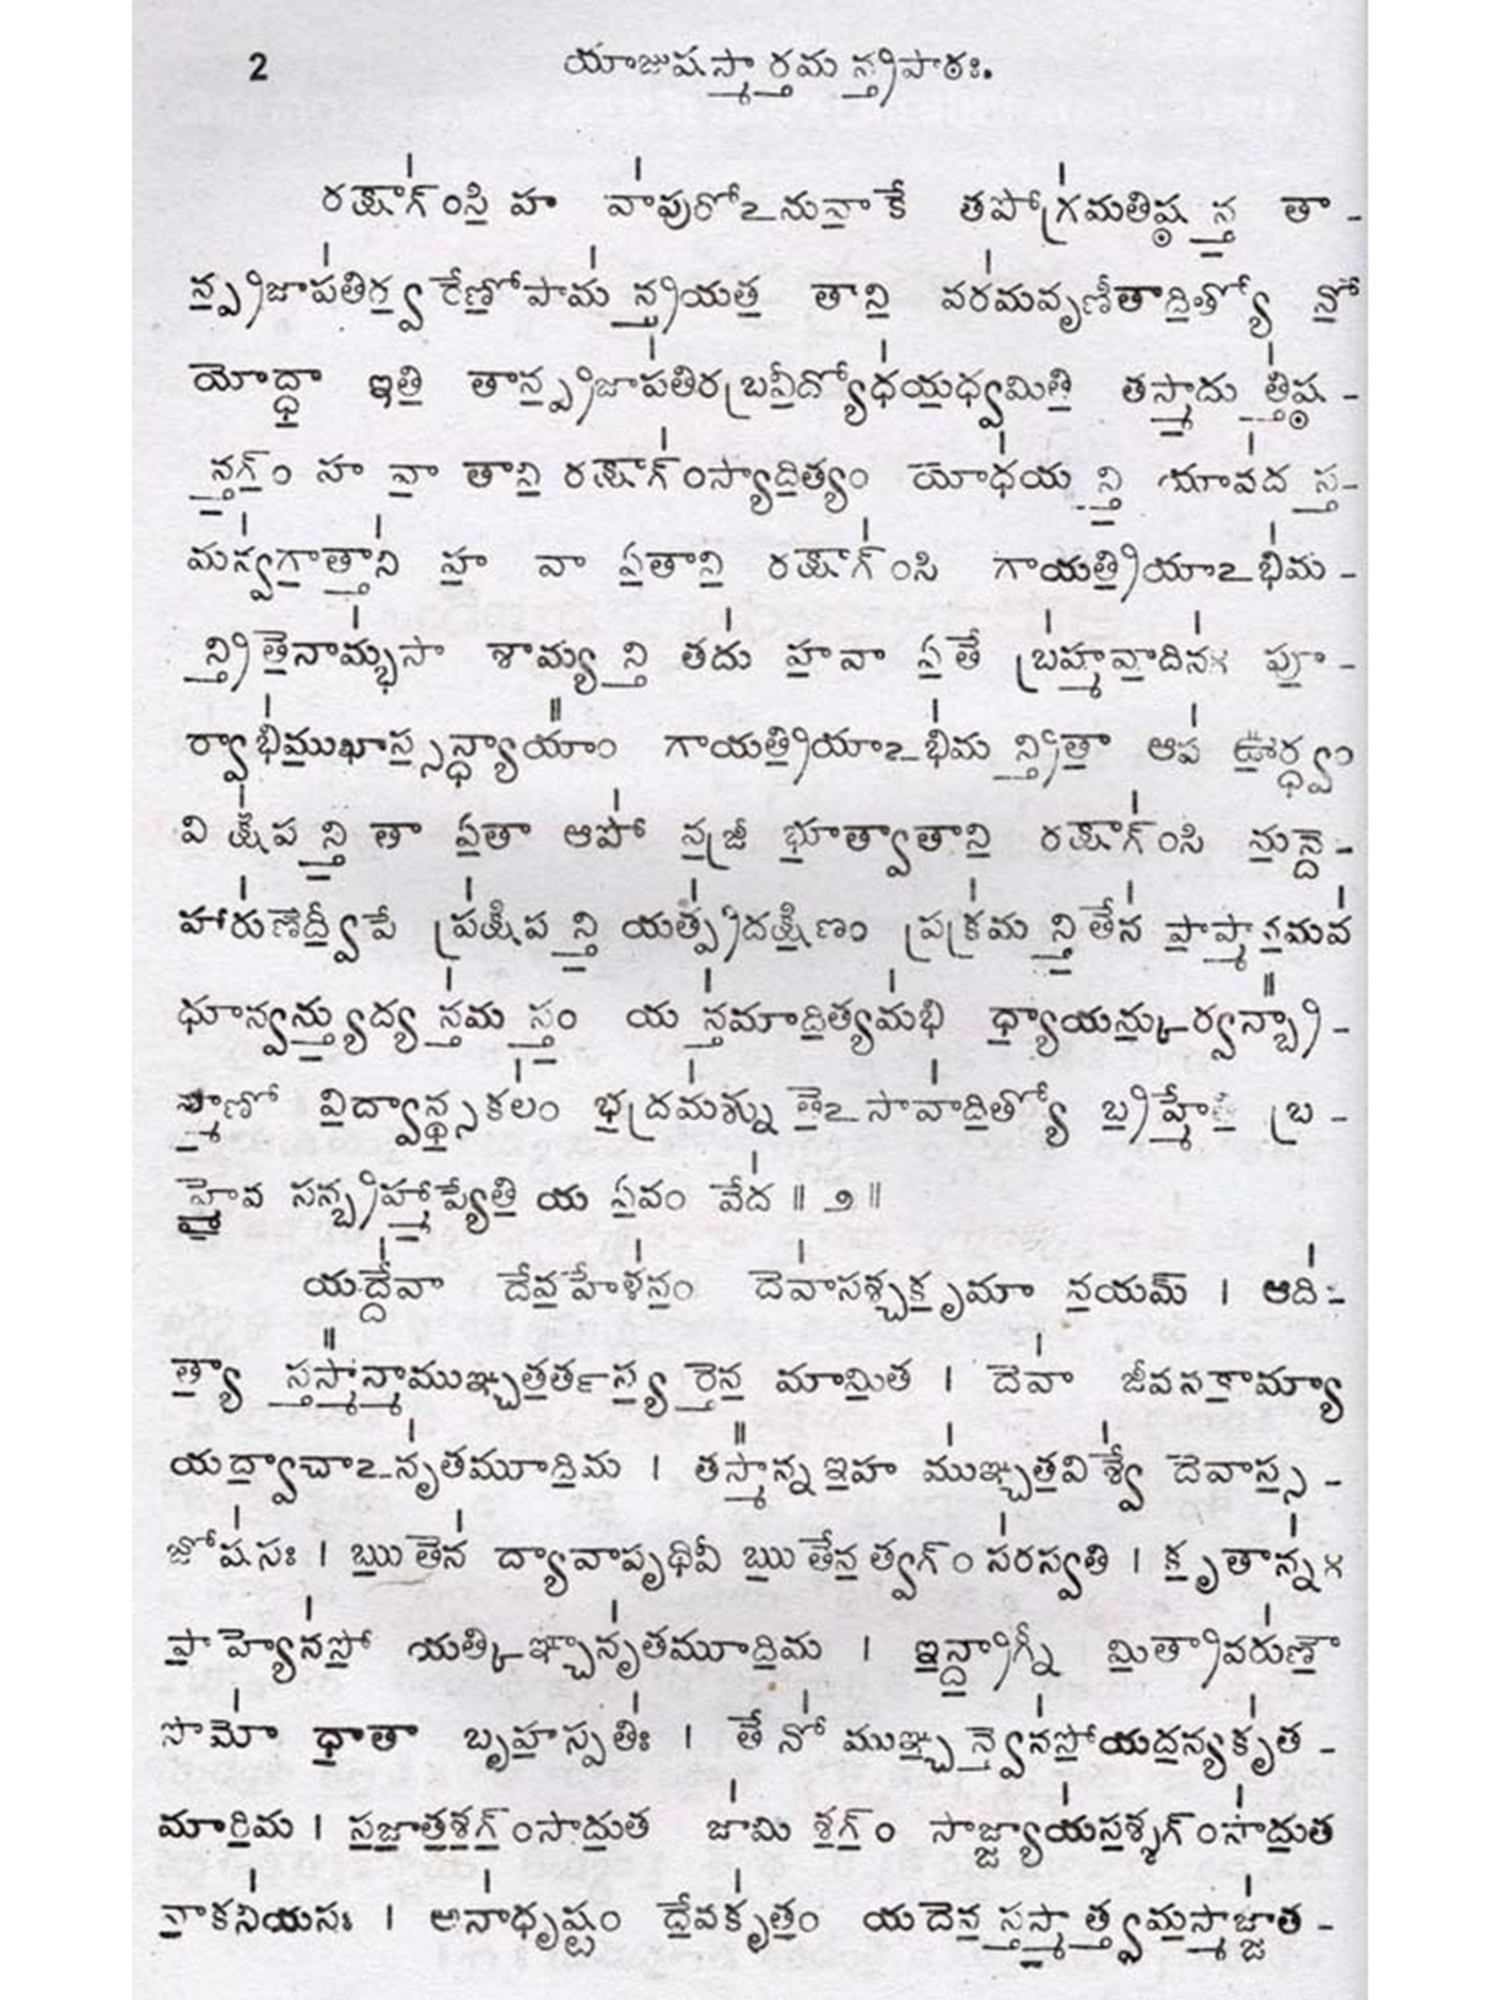 2 యాజుషస్మార్తమన్త్రపాఠః.
రక్షాగ్ంసి హ వాపురోఽనువాకే తపోగ్రమతిష్ఠన్త తా-
న్ప్రజాపతిర్వరేణోపామన్త్రయత తాని వరమవృణీతాదిత్యో నో
యోద్ధా ఇతి తాన్ప్రజాపతిరబ్రవీద్యోధయధ్వమితి తస్మాదుత్తిష్ఠ-
న్తగ్ం హ వా తాని రక్షాగ్ంస్యాదిత్యం యోధయన్తి యావదస్త-
మన్వగాత్తాని హ వా ఏతాని రక్షాగ్ంసి గాయత్రియాఽభిమ-
న్త్రితేనామ్భసా శామ్యన్తి తదు హవా ఏతే బ్రహ్మవాదినః పూ-
ర్వాభిముఖాస్సన్ధ్యాయాం గాయత్రియాఽభిమన్త్రితా ఆప ఊర్ధ్వం
విక్షిపన్తి తా ఏతా ఆపో వజ్రీ భూత్వాతాని రక్షాగ్ంసి మన్దే-
హారుణేద్వీపే ప్రక్షిపన్తి యత్ప్రదక్షిణం ప్రక్రమన్తి తేన పాప్మానమవ
ధూన్వన్త్యుద్యన్తమస్తం యన్తమాదిత్యమభి ధ్యాయన్కుర్వన్బ్రా-
హ్మణో విద్వాన్థ్సకలం భద్రమశ్నుతేఽసావాదిత్యో బ్రహ్మేతి బ్ర-
హ్మైవ సన్బ్రహ్మాప్యేతి య ఏవం వేద ॥ ౨ ॥
యద్దేవా దేవహేళనం దేవాసశ్చకృమా వయమ్ । ఆది-
త్యా స్తస్మాన్మాముఞ్చతర్తస్యర్తేన మామిత । దేవా జీవనకామ్యా
యద్వాచాఽనృతమూదిమ । తస్మాన్న ఇహ ముఞ్చత విశ్వే దేవాస్స-
జోషసః । ఋతేన ద్యావాపృథివీ ఋతేన త్వగ్ం సరస్వతి । కృతాన్నః
పాహ్యేనసో యత్కిఞ్చానృతమూదిమ । ఇన్ద్రాగ్నీ మిత్రావరుణౌ
సోమో ధాతా బృహస్పతిః । తే నో ముఞ్చన్త్వేనసోయదన్యకృత-
మారిమ । సజాతశగ్ంసాదుత జామి శగ్ం సాజ్జ్యాయసశ్శగ్ంసాదుత
వాకనీయసః । అనాధృష్టం దేవకృతం యదేనస్తస్మాత్త్వమస్మాజ్జాత-